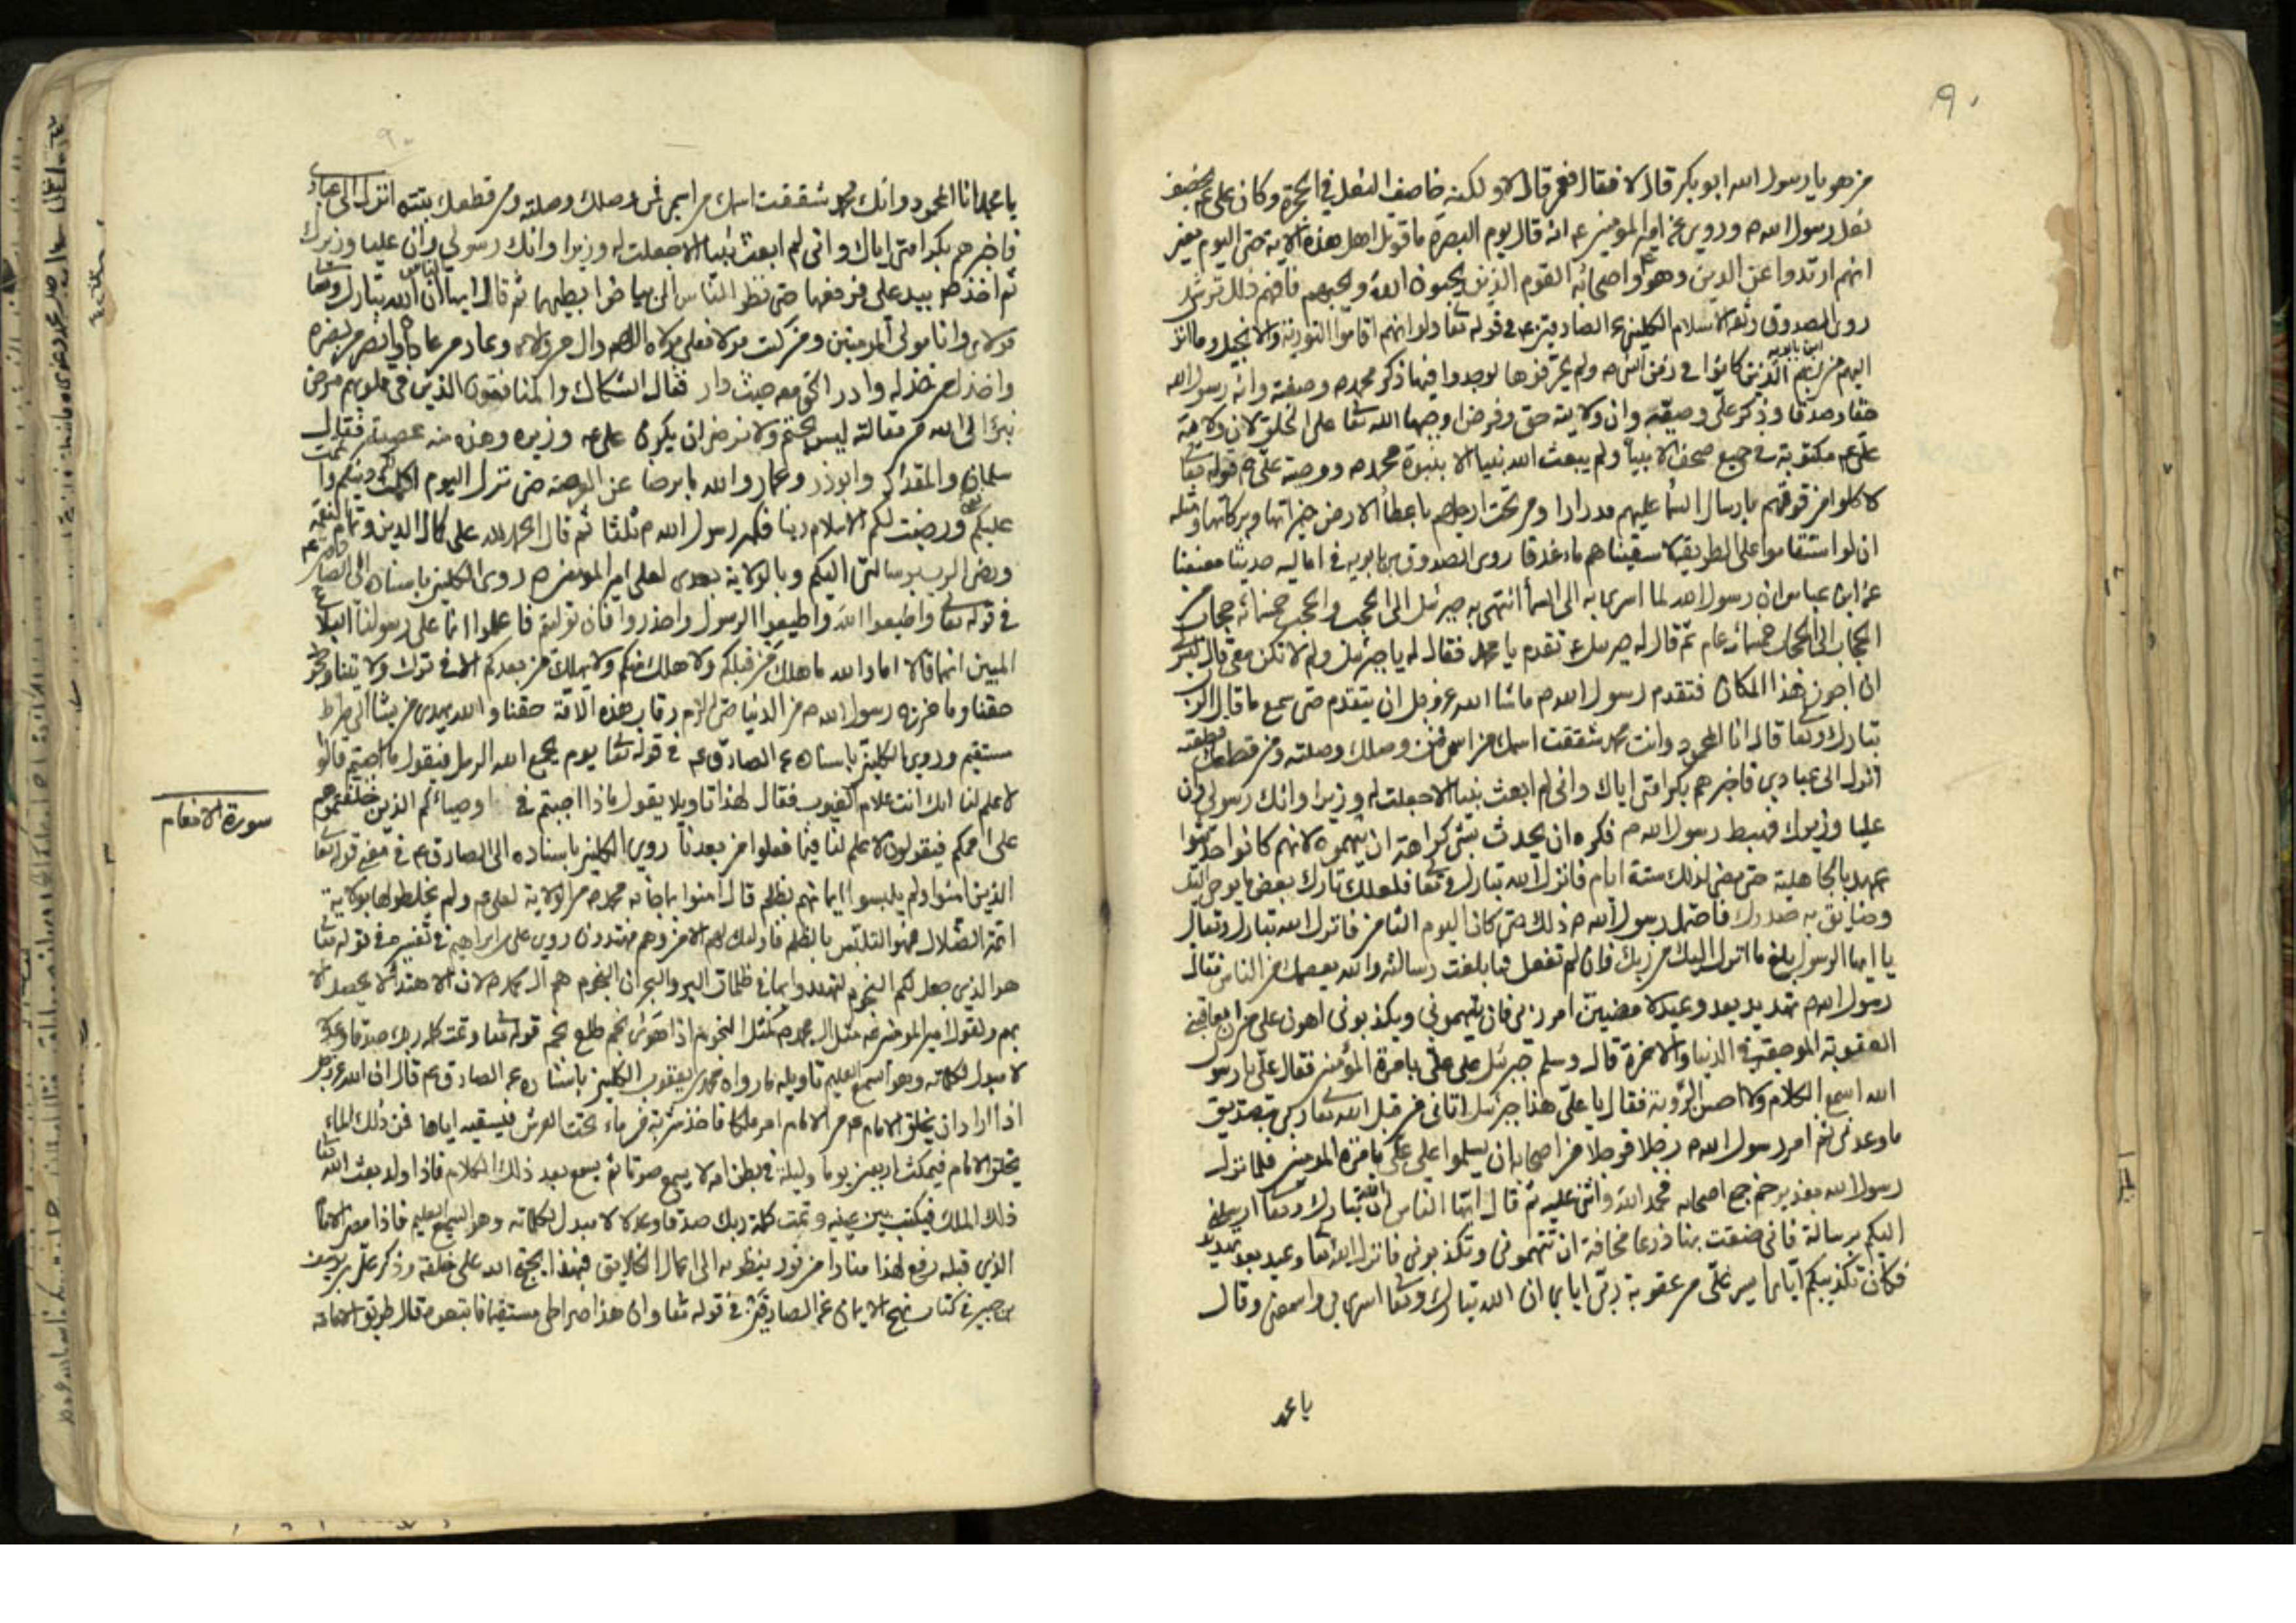 ٩٠
من هو يا رسول الله ابو بكر قال لا فقال فعمر قال لا ولكنه خاصف النعل في الحجرة وكان علي عم يخصف
نعل رسول الله ص وروي عن امير المؤمنين عم انه قال يوم البصرة ما قوتل اهل هذه الاية حتى اليوم يعني
انهم ارتدوا عن الدين وهو واصحابه القوم الذين يحبون الله ويحبهم فافهم ذلك ترشد
روى الصدوق وثقة الاسلام الكليني عن الصادقين عم في قوله تعا ولو انهم اقاموا التورية والانجيل وما انزل
اليهم من ربهم الذين كانوا في زمن النبي ص ولم يحرفوها لوجدوا فيها ذكر محمد ص وصفته وانه رسول الله
حقا وصدقا وذكر علي وصيته وان ولايته حق وفرض اوجبها الله تعا على الخلق لان ولاية
علي عم مكتوبة في جميع صحف الانبيا ولم يبعث الله نبيا الا بنبوة محمد ص ووصية علي عم قوله تعا
لاكلوا من فوقهم بارسال السما عليهم مدرارا ومن تحت ارجلهم باعطا الارض خيراتها وبركاتها ومثله
ان لو استقاموا على الطريقة لاسقيناهم ماء غدقا روى الصدوق بن بابويه في اماليه حديثا معنعنا
عن ابن عباس ان رسول الله لما اسري به الى السما انتهى به جبرئيل الى الحجب والحجب خمسمائة حجاب من
الحجاب الى الحجاب خمسمائة عام ثم قال له جبرئيل عم تقدم يا محمد فقال له يا جبرئيل ولم لا تكن معي قال ليس لي
ان اجوز هذا المكان فتقدم رسول الله ص ما شا الله عز وجل ان يتقدم حتى سمع ما قال الرب
تبارك وتعا قال انا المحمود وانت محمد شققت اسمك من اسمي فمن وصلك وصلته ومن قطعك قطعته
انزل الى عبادي فاخبرهم بكرامتي اياك واني لم ابعث نبيا الا جعلت له وزيرا وانك رسولي وان
عليا وزيرك فهبط رسول الله ص فكره ان يحدث بشي كراهة ان يتهموه لانهم كانوا حديثوا
عهد بالجاهلية حتى مضى لذلك ستة ايام فانزل الله تبارك وتعا فلعلك تارك بعض ما يوحى اليك
وضايق به صدرك فاحتمل رسول الله ص ذلك حتى كان اليوم الثامن فانزل الله تبارك وتعالى
يا ايها الرسول بلغ ما انزل اليك من ربك فان لم تفعل فما بلغت رسالته والله يعصمك من الناس فقال
رسول الله ص تهديد بعد وعيد لا مضين امر ربي فان يتهموني ويكذبوني اهون علي من ان يعاقبني
العقوبة الموجعة في الدنيا والاخرة قال وسلم جبرئيل على علي بامرة المؤمنين فقال علي يا رسول
الله اسمع الكلام ولا احس الرؤية فقال يا علي هذا جبرئيل اتاني من قبل الله تعا ربي بتصديق
ما وعدني ثم امر رسول الله ص رجلا فرجلا من اصحابه ان يسلموا على علي بامرة المؤمنين فلما نزل
رسول الله بغدير خم جمع اصحابه فحمد الله واثنى عليه ثم قال ايها الناس ان الله تبارك وتعا ارسلني
اليكم برسالة فاني ضقت بها ذرعا مخافة ان تتهموني وتكذبوني فانزل الله تعا وعيد بعد تهديد
فكان تكذيبكم اياي ايسر علي من عقوبة ربي اياي ان الله تبارك وتعا اسرى بي واسمعني وقال
يا محمد
يا محمد انا المحمود وانك محمد شققت اسمك من اسمي فمن وصلك وصلته ومن قطعك بتته انزل الى عبادي
فاخبرهم بكرامتي اياك واني لم ابعث نبيا الا جعلت له وزيرا وانك رسولي وان عليا وزيرك
ثم اخذ ص بيد علي فرفعها حتى نظر الناس الى بياض ابطيهما ثم قال ايها الناس ان الله تبارك وتعا
مولاي وانا مولى المؤمنين ومن كنت مولاه فعلي مولاه اللهم وال من والاه وعاد من عاداه وانصر من نصره
واخذل من خذله وادر الحق معه حيث دار فقال الشكاك والمنافقون الذين في قلوبهم مرض
نبرأ الى الله من مقالته ليس بحتم ولا نرضى ان يكون علي عم وزيره وهذه منه عصبية فقال
سلمان والمقداد وابوذر وعمار والله ما برحنا عن العرصة حتى نزل اليوم اكملت لكم دينكم واتممت
عليكم نعمتي ورضيت لكم الاسلام دينا فكبر رسول الله ص ثلثا ثم قال الحمد لله على كمال الدين وتمام النعمة
ورضى الرب برسالتي اليكم وبالولاية بعدى لعلي امير المؤمنين ص روى الكليني باسناده الى الصادق عم
في قوله تعا واطيعوا الله واطيعوا الرسول واحذروا فان توليتم فاعلموا انما على رسولنا البلاغ
المبين انهما قالا اما والله ما هلك من قبلكم ولا هلك منكم ولا يهلك من بعدكم الا في ترك ولايتنا وجحود
حقنا وما خرج رسول الله ص من الدنيا حتى الزم رقاب هذه الامة حقنا والله يهدي من يشا الى صراط
مستقيم وروى الكليني باسناده عن الصادق عم في قوله تعا يوم يجمع الله الرسل فيقول ما ذا اجبتم قالوا
لا علم لنا انك انت علام الغيوب فقال لهذا تاويلا يقول ماذا اجبتم في اوصيائكم الذين خلفتموهم
على اممكم فيقولون لا علم لنا فيما فعلوا من بعدنا روى الكليني باسناده الى الصادق عم في معنى قوله تعا
سورة الانعام
الذين امنوا ولم يلبسوا ايمانهم بظلم قال امنوا بما جا به محمد ص من الولاية لعلي عم ولم يخلطوها بولاية
ائمة الضلال فهو التلبس بالظلم فاولئك لهم الامن وهم مهتدون روى علي بن ابراهيم في تفسيره في قوله تعا
هو الذي جعل لكم النجوم لتهتدوا بها في ظلمات البر والبحر ان النجوم هم ال محمد ص لان الاهتدا لا يحصل الا
بهم ولقول امير المؤمنين عم مثل ال محمد ص كمثل النجوم اذا هوى نجم طلع نجم قوله تعا وتمت كلمة ربك صدقا وعدلا
لا مبدل لكلماته وهو السميع العليم تاويله ما رواه محمد بن يعقوب الكليني باسناده عن الصادق عم قال ان الله عز وجل
اذا اراد ان يخلق الامام عم من الامام امر ملكا فاخذ شربة من ماء تحت العرش فيسقيه اياها فمن ذلك الماء
يخلق الامام فيمكث اربعين يوما وليلة في بطن امه لا يسمع صوتا ثم يسمع بعد ذلك الكلام فاذا ولد بعث الله تعا
ذلك الملك فيكتب بين عينيه وتمت كلمة ربك صدقا وعدلا لا مبدل لكلماته وهو السميع العليم فاذا مضى الامام
الذي قبله رفع لهذا منارا من نور ينظر به الى اعمال الخلايق فبهذا يحتج الله على خلقه وذكر علي بن يوسف
بن جبير في كتاب نهج الايمان عن الصادقين في قوله تعا وان هذا صراطي مستقيما فاتبعوه قال طريق الامامة